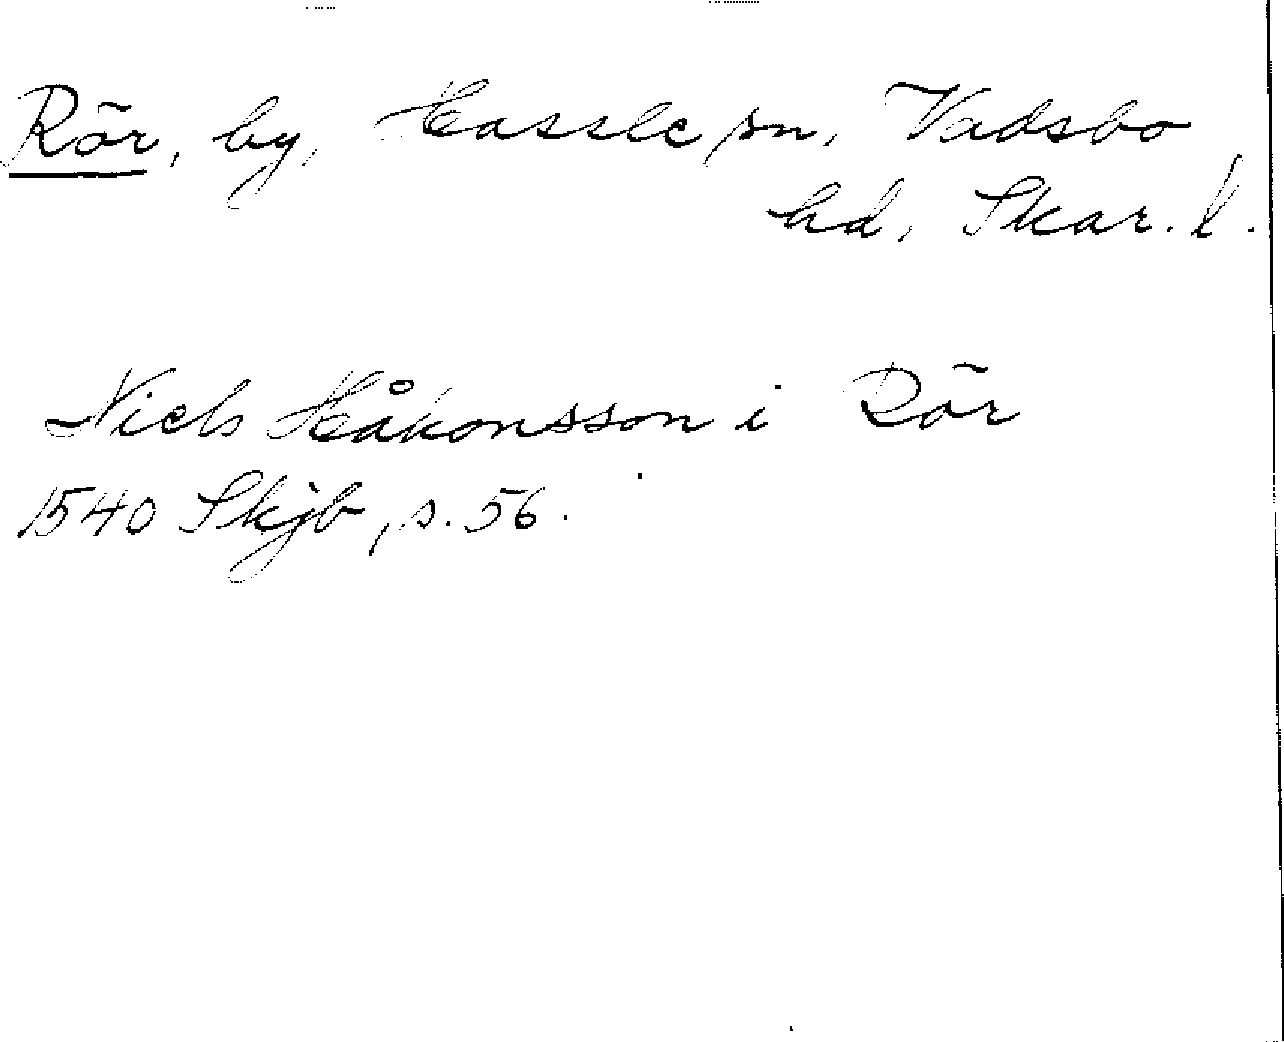 Rör, by, Hassle sn, Vadsbo
hd, Skar. l.
Niels Håkonsson i Rör
1540 Skjb, s. 56.